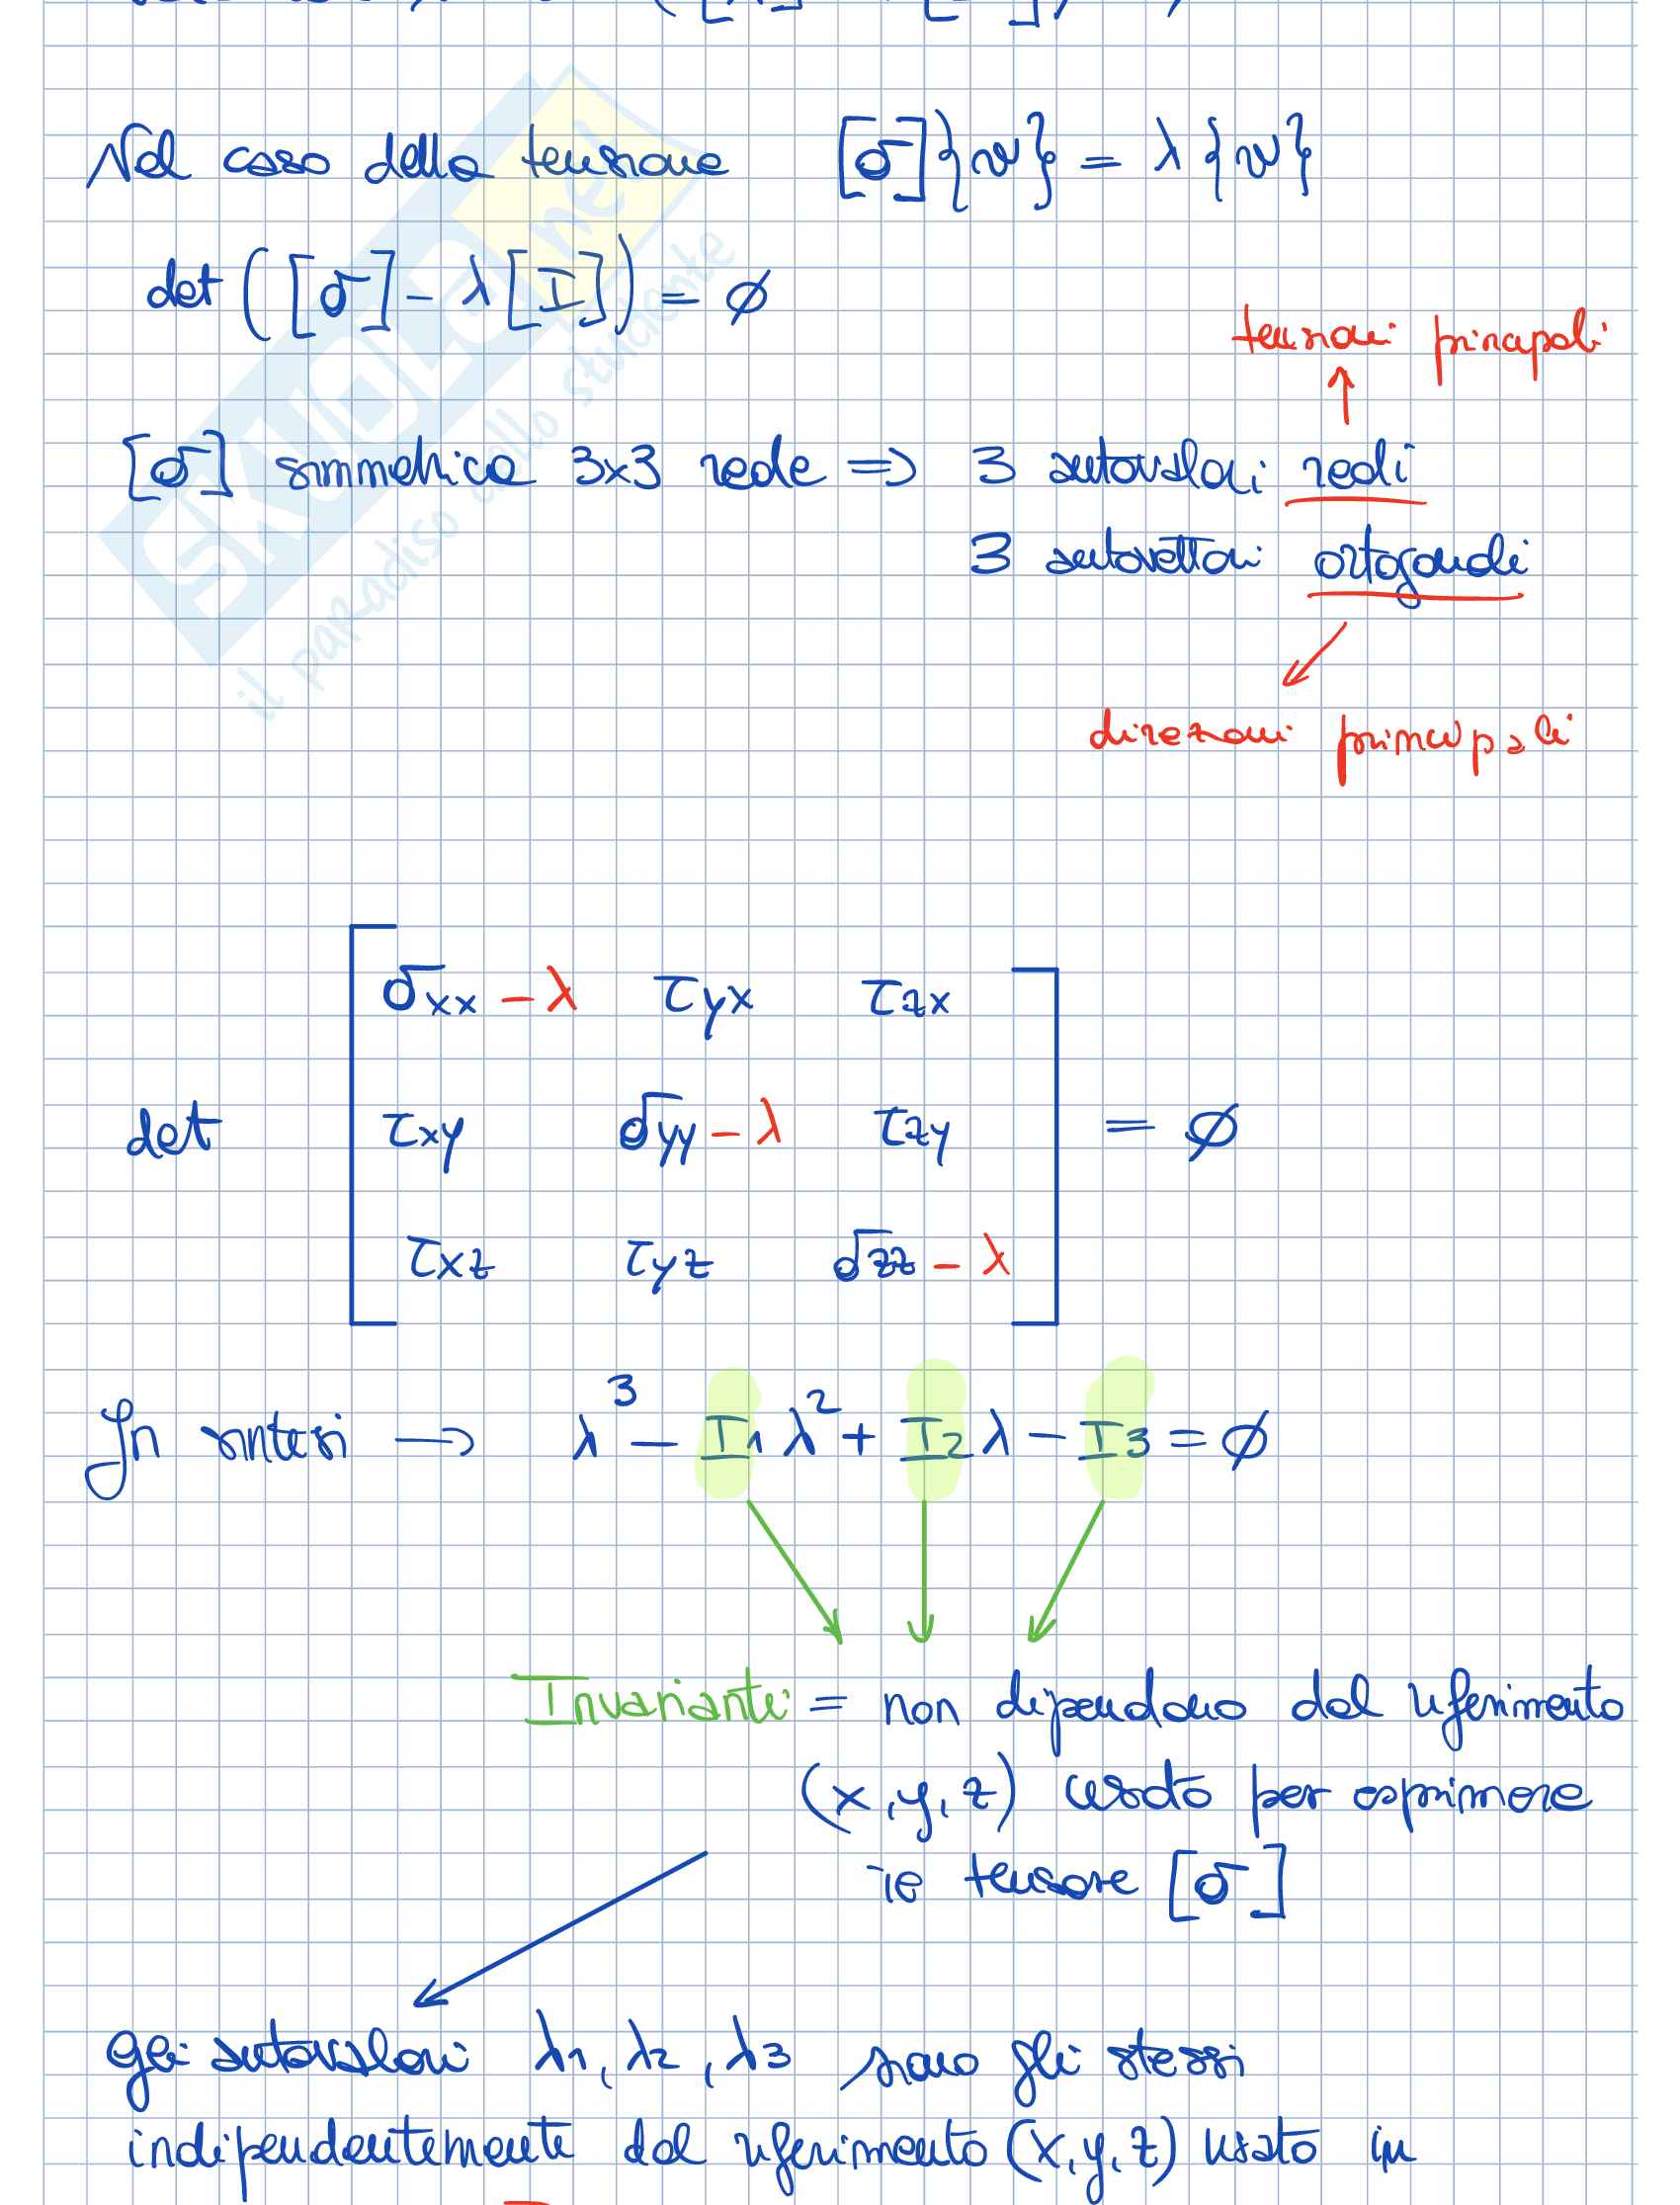 Nel caso della tensione [σ]{v} = λ{v}
det([σ] - λ[I]) = ∅
tensioni principali
[σ] simmetrica 3x3 reale => 3 autovalori reali
3 autovettori ortogonali
direzioni principali
σxx - λ τyx τzx
det τxy σyy - λ τzy = ∅
τxz τyz σzz - λ
In sintesi → λ³ - I1 λ² + I2 λ - I3 = ∅
Invarianti = non dipendono dal riferimento
(x, y, z) usato per esprimere
il tensore [σ]
gli autovalori λ1, λ2, λ3 sono gli stessi
indipendentemente dal riferimento (x, y, z) usato in
SKUOLA.net
il paradiso dello studente